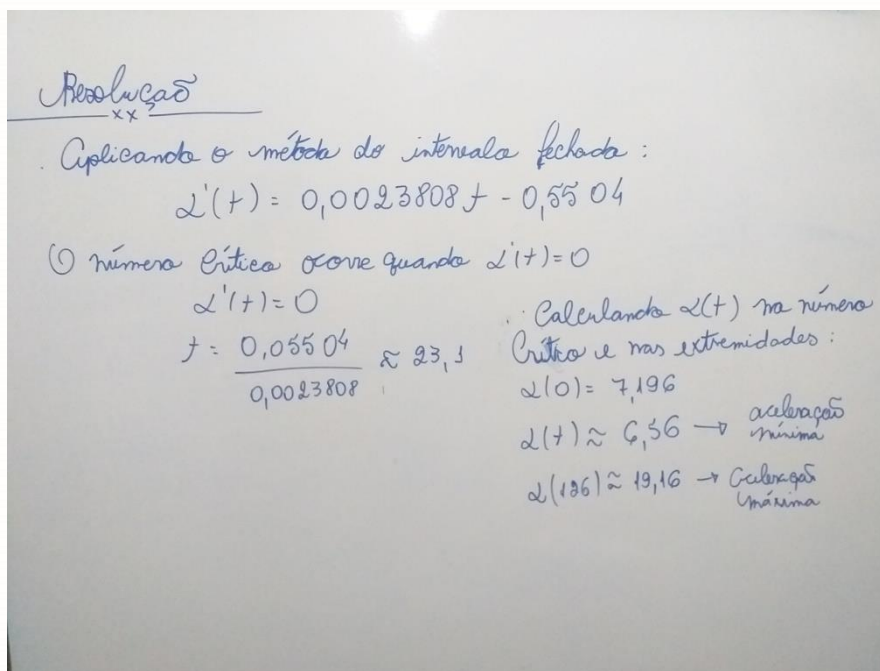 Resolução
xx
. Aplicando o método do intervalo fechado:
α'(t) = 0,0023808t - 0,5504
O número crítico ocorre quando α'(t)=0
α'(t) = 0
t = 0,05504 / 0,0023808 ≈ 23,1
∴ Calculando α(t) no número
Crítco e nas extremidades:
α(0) = 7,196
α(t) ≈ 6,56 → aceleração mínima
α(126) ≈ 19,16 → Aceleração máxima